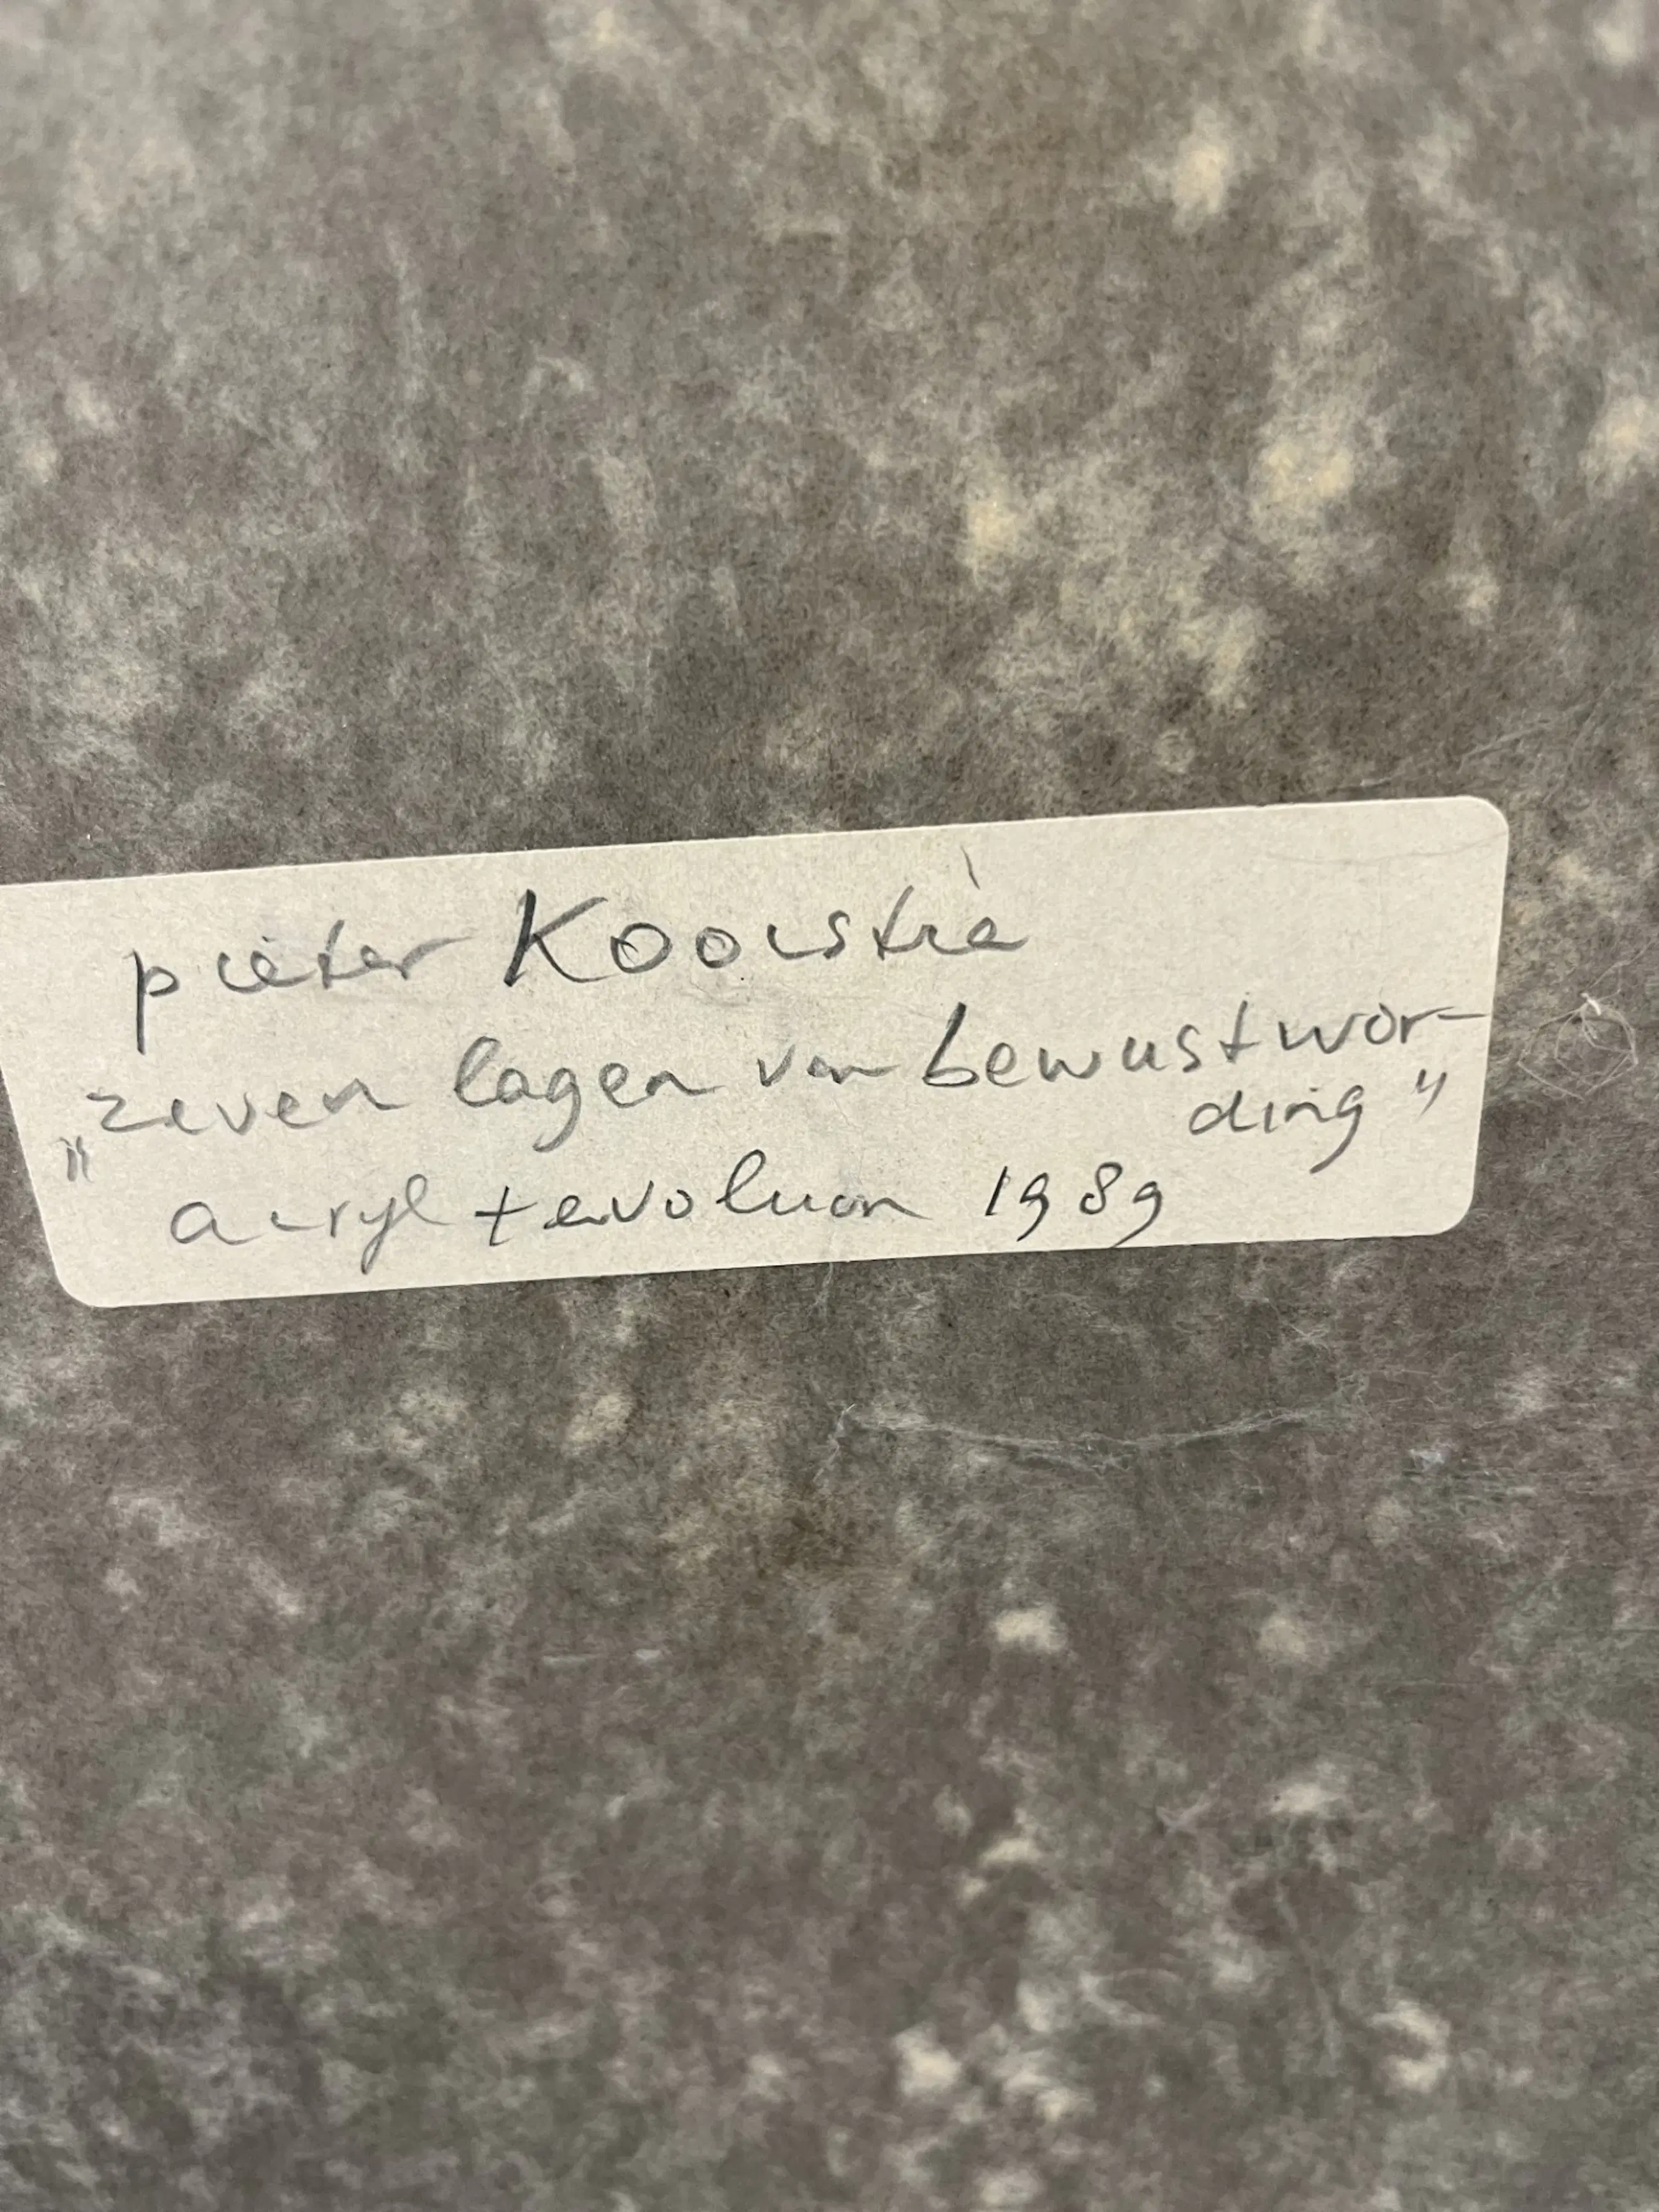 pieter Kooistra
„zeven lagen van bewustwor-
ding"
acryl + evoluon 1989